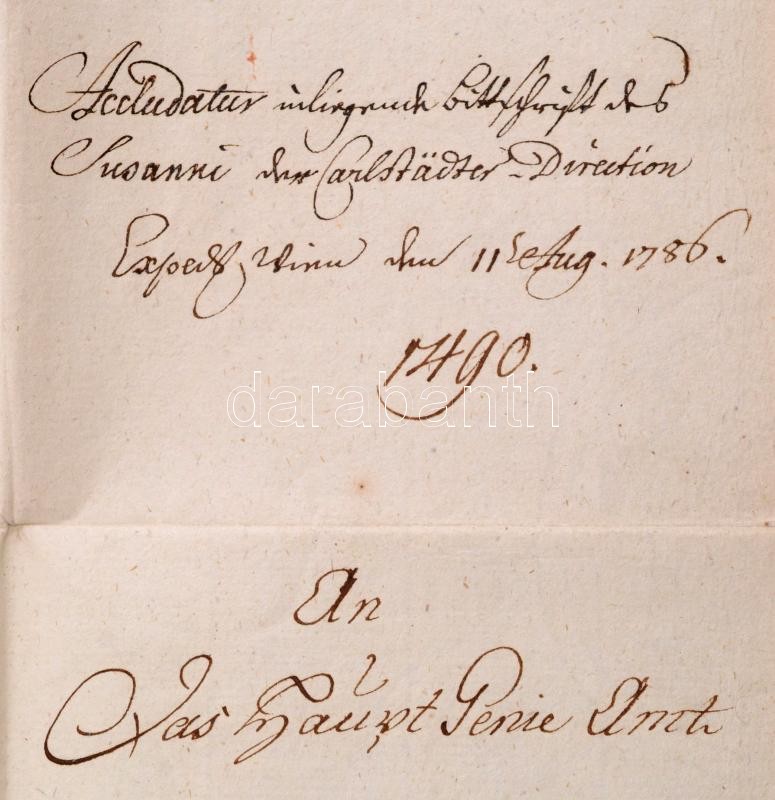 Accludatur inliegende Bittschrift des
Susanni der Carlstädter-Direction
Exped. Wien den 11t Aug. 1786.
1490.
darabanth
An
Das Haupt Genie Amt